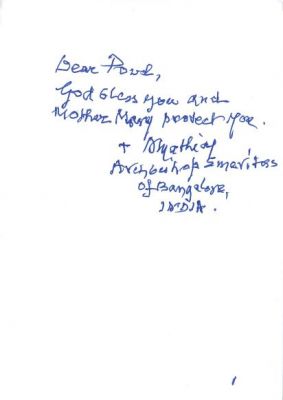 Dear
God bless you and
Mother Mary protect you.
+ AMathias
Archbishop Emeritus
Of Bangalore,
INDIA.